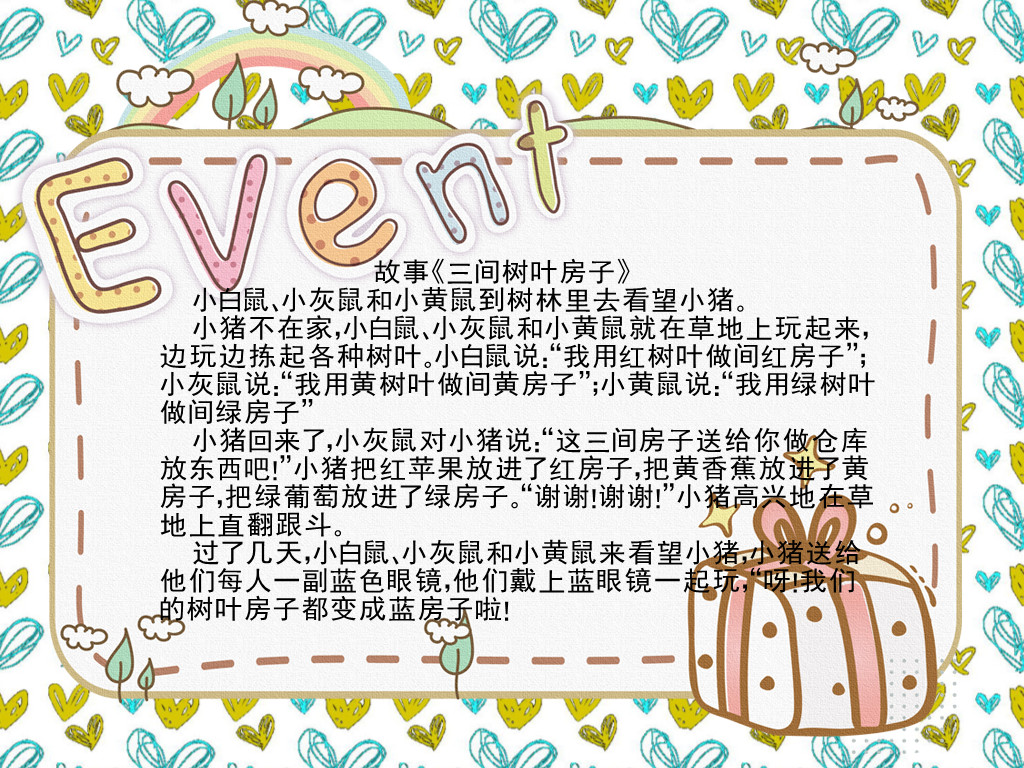 Event
故事《三间树叶房子》
小白鼠、小灰鼠和小黄鼠到树林里去看望小猪。
小猪不在家,小白鼠、小灰鼠和小黄鼠就在草地上玩起来,
边玩边拣起各种树叶。小白鼠说:“我用红树叶做间红房子”;
小灰鼠说:“我用黄树叶做间黄房子”;小黄鼠说:“我用绿树叶
做间绿房子”
小猪回来了,小灰鼠对小猪说:“这三间房子送给你做仓库
放东西吧!”小猪把红苹果放进了红房子,把黄香蕉放进了黄
房子,把绿葡萄放进了绿房子。“谢谢!谢谢!”小猪高兴地在草
地上直翻跟斗。
过了几天,小白鼠、小灰鼠和小黄鼠来看望小猪,小猪送给
他们每人一副蓝色眼镜,他们戴上蓝眼镜一起玩,“呀!我们
的树叶房子都变成蓝房子啦!